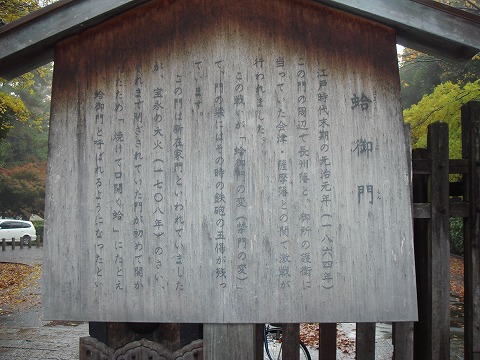 蛤御門
江戸時代末期の元治元年(一八六四年)
この門の周辺で長州藩と、御所の護衛に
当っていた会津・薩摩藩との間で激戦が
行われました。
この戦いが「蛤御門の変(禁門の変)」
で、門の梁にはその時の鉄砲の玉傷が残っ
て
ます。
この門は新在家門といわれていました
が、宝永の大火(一七〇八年)のさい、
それまで閉ざされていた門が初めて開か
ため「焼けて口開く蛤」にたとえ
蛤御門と呼ばれるようになったとい